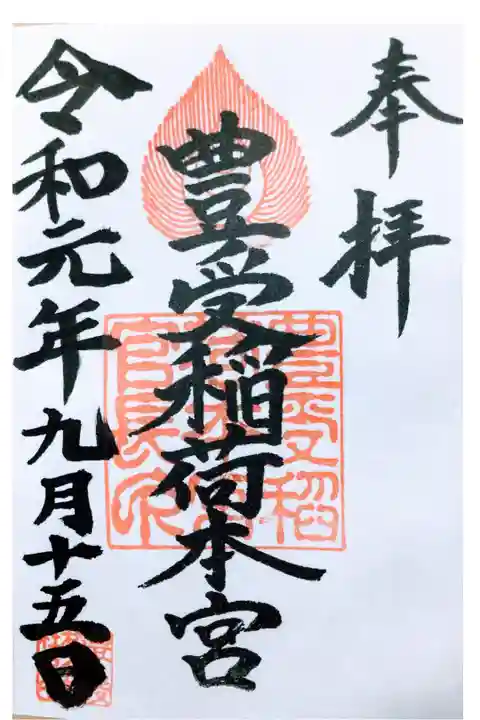 奉拝
豊受稲荷本宮
令和元年九月十五日